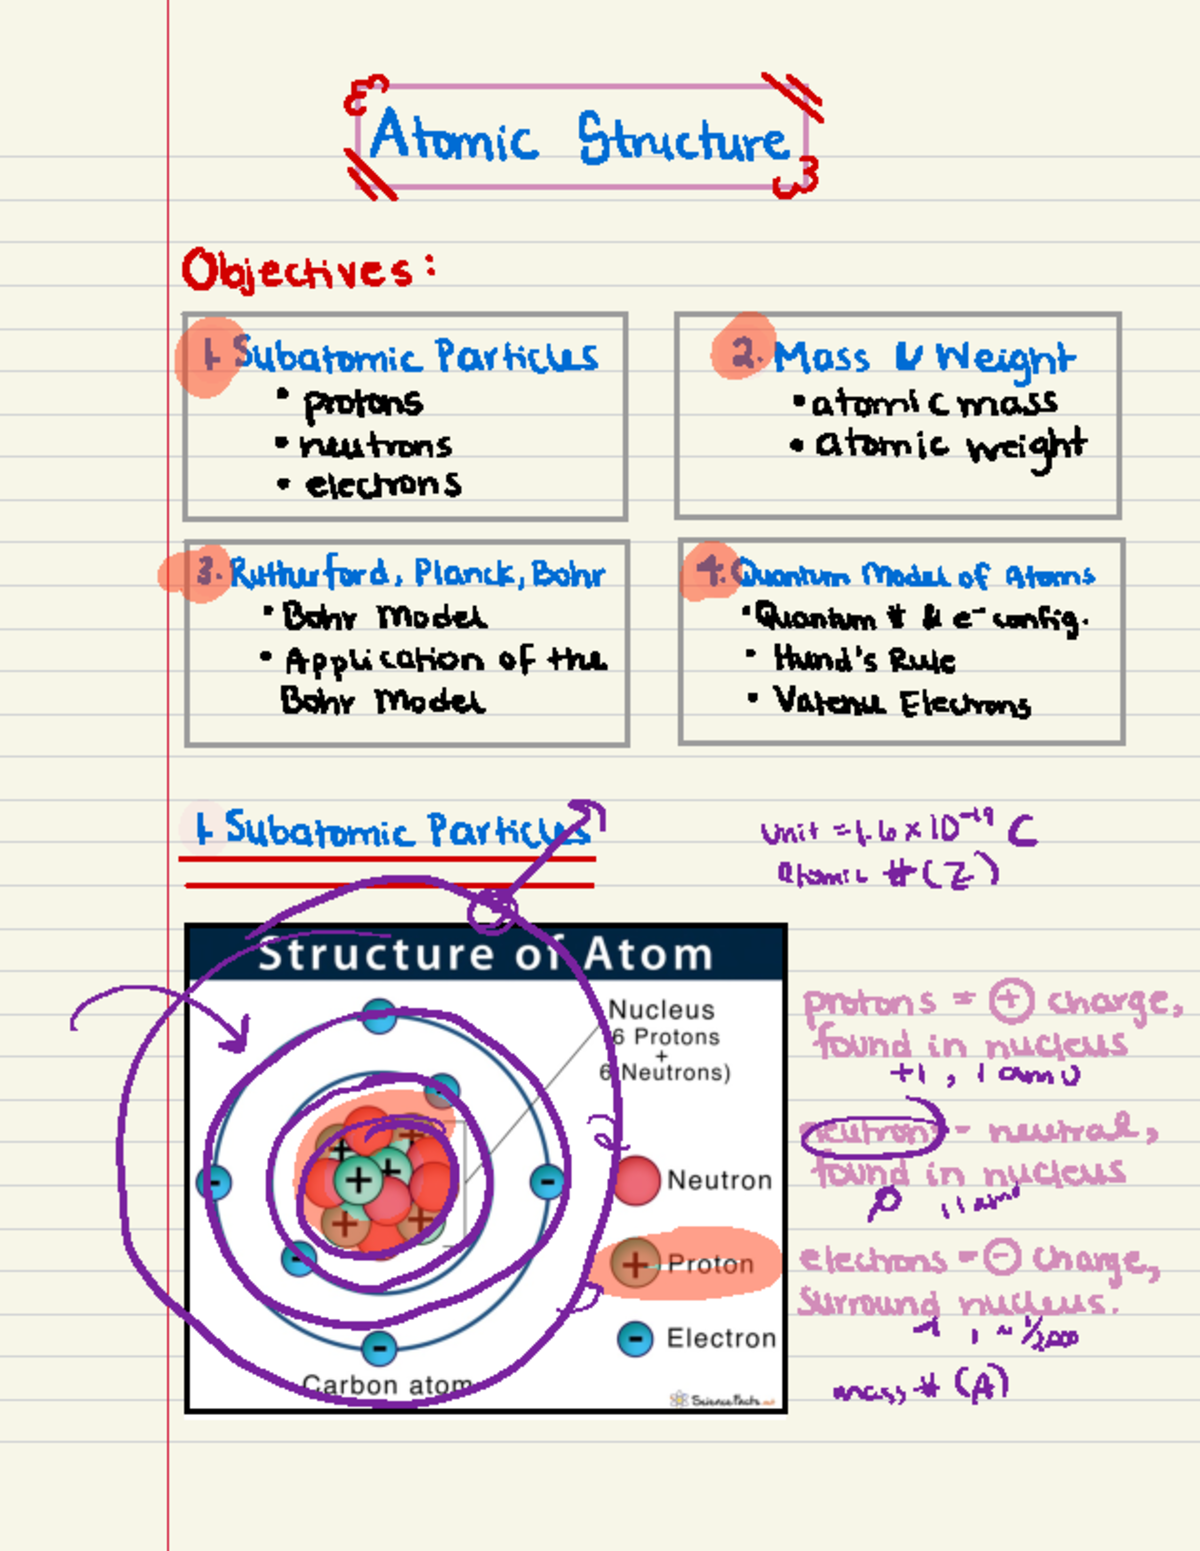 Atomic Structure
Objectives:
1. Subatomic Particles
• protons
• neutrons
• electrons
2. Mass & Weight
• atomic mass
• atomic weight
3. Rutherford, Planck, Bohr
• Bohr Model
• Application of the
Bohr Model
4. Quantum Model of Atoms
• Quantum # & e⁻ config.
• Hund's Rule
• Valence Electrons
1. Subatomic Particles
unit = 1.6 × 10⁻¹⁹ C
atomic # (Z)
Structure of Atom
Nucleus
6 Protons
+
6 Neutrons)
Neutron
+ Proton
- Electron
Carbon atom
ScienceFacts.net
protons = ⊕ charge,
found in nucleus
+1, 1 amu
neutron - neutral,
found in nucleus
1 amu
electrons = ⊖ charge,
surround nucleus.
-1, ~ 1/2000
mass # (A)